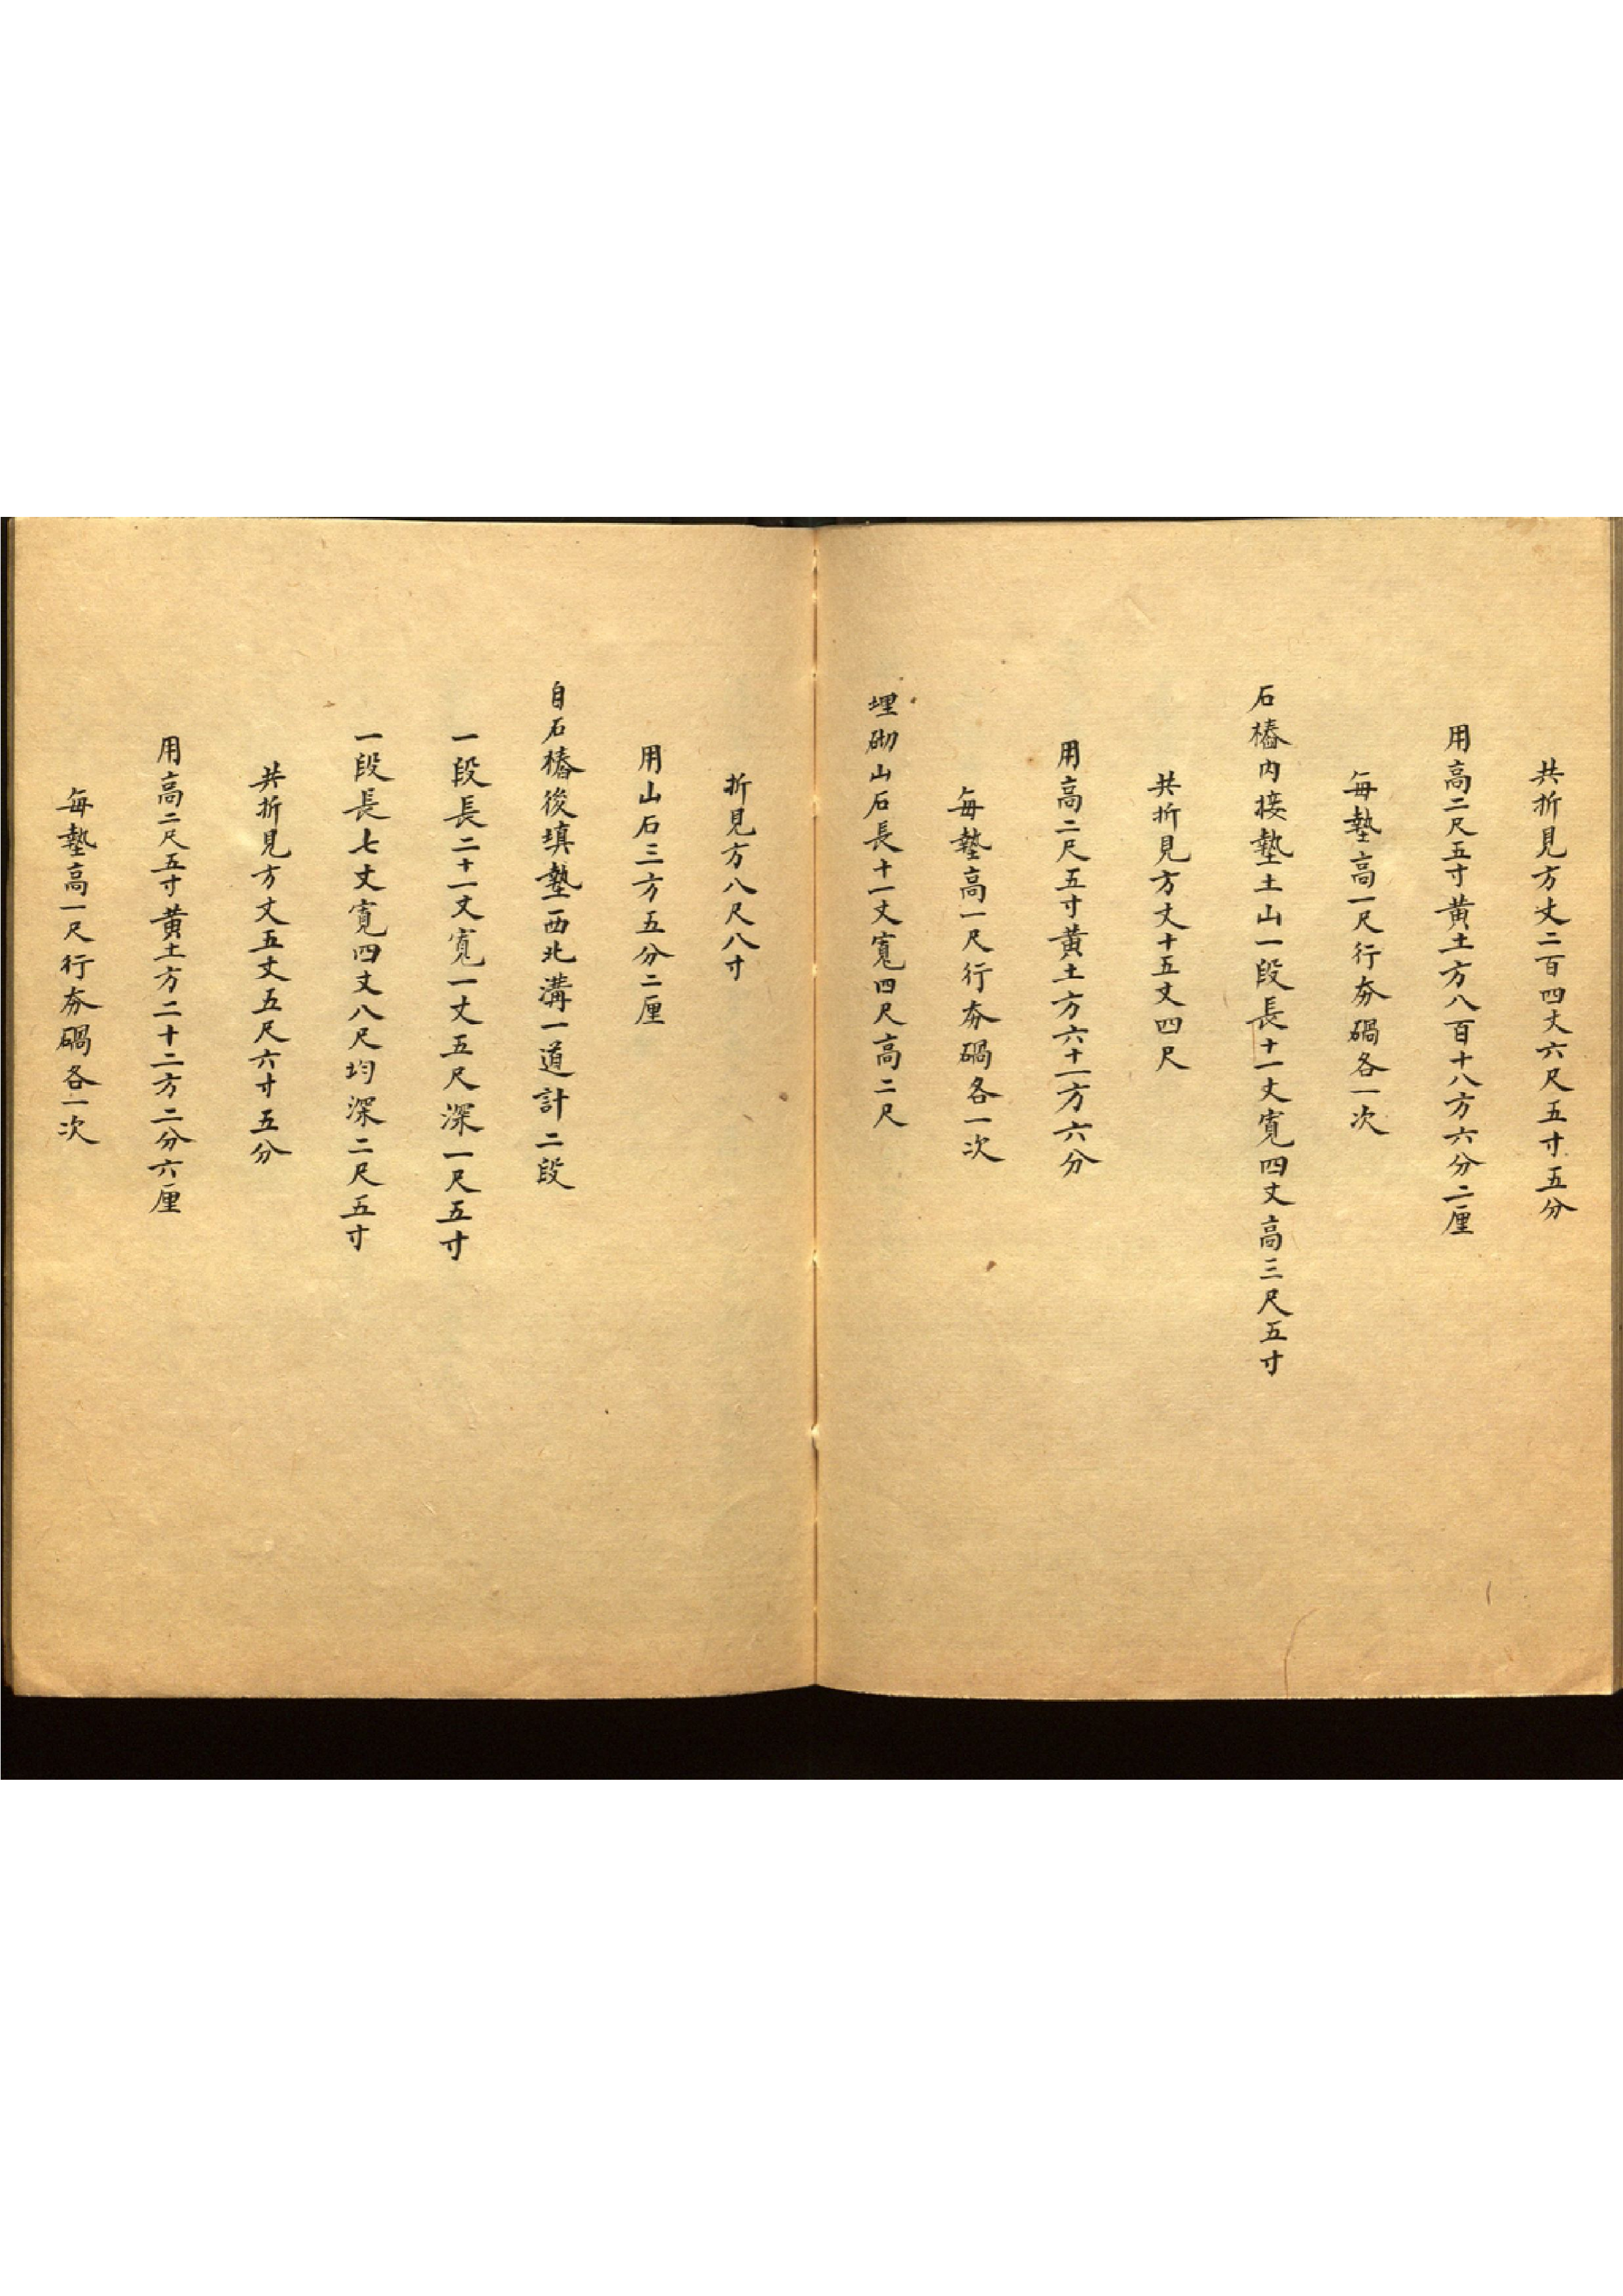 共折見方丈二百四丈六尺五寸五分
用高二尺五寸黄土方八百十八方六分二厘
每墊高一尺行夯硪各一次
石樁內接墊土山一段長十一丈寬四丈高三尺五寸
共折見方丈十五丈四尺
用高二尺五寸黄土方六十一方六分
每墊高一尺行夯硪各一次
埋砌山石長十一丈寬四尺高二尺
折見方八尺八寸
用山石三方五分二厘
自石樁後填墊西北溝一道計二段
一段長二十一丈寬一丈五尺深一尺五寸
一段長七丈寬四丈八尺均深二尺五寸
共折見方丈五丈五尺六寸五分
用高二尺五寸黄土方二十二方二分六厘
每墊高一尺行夯硪各一次